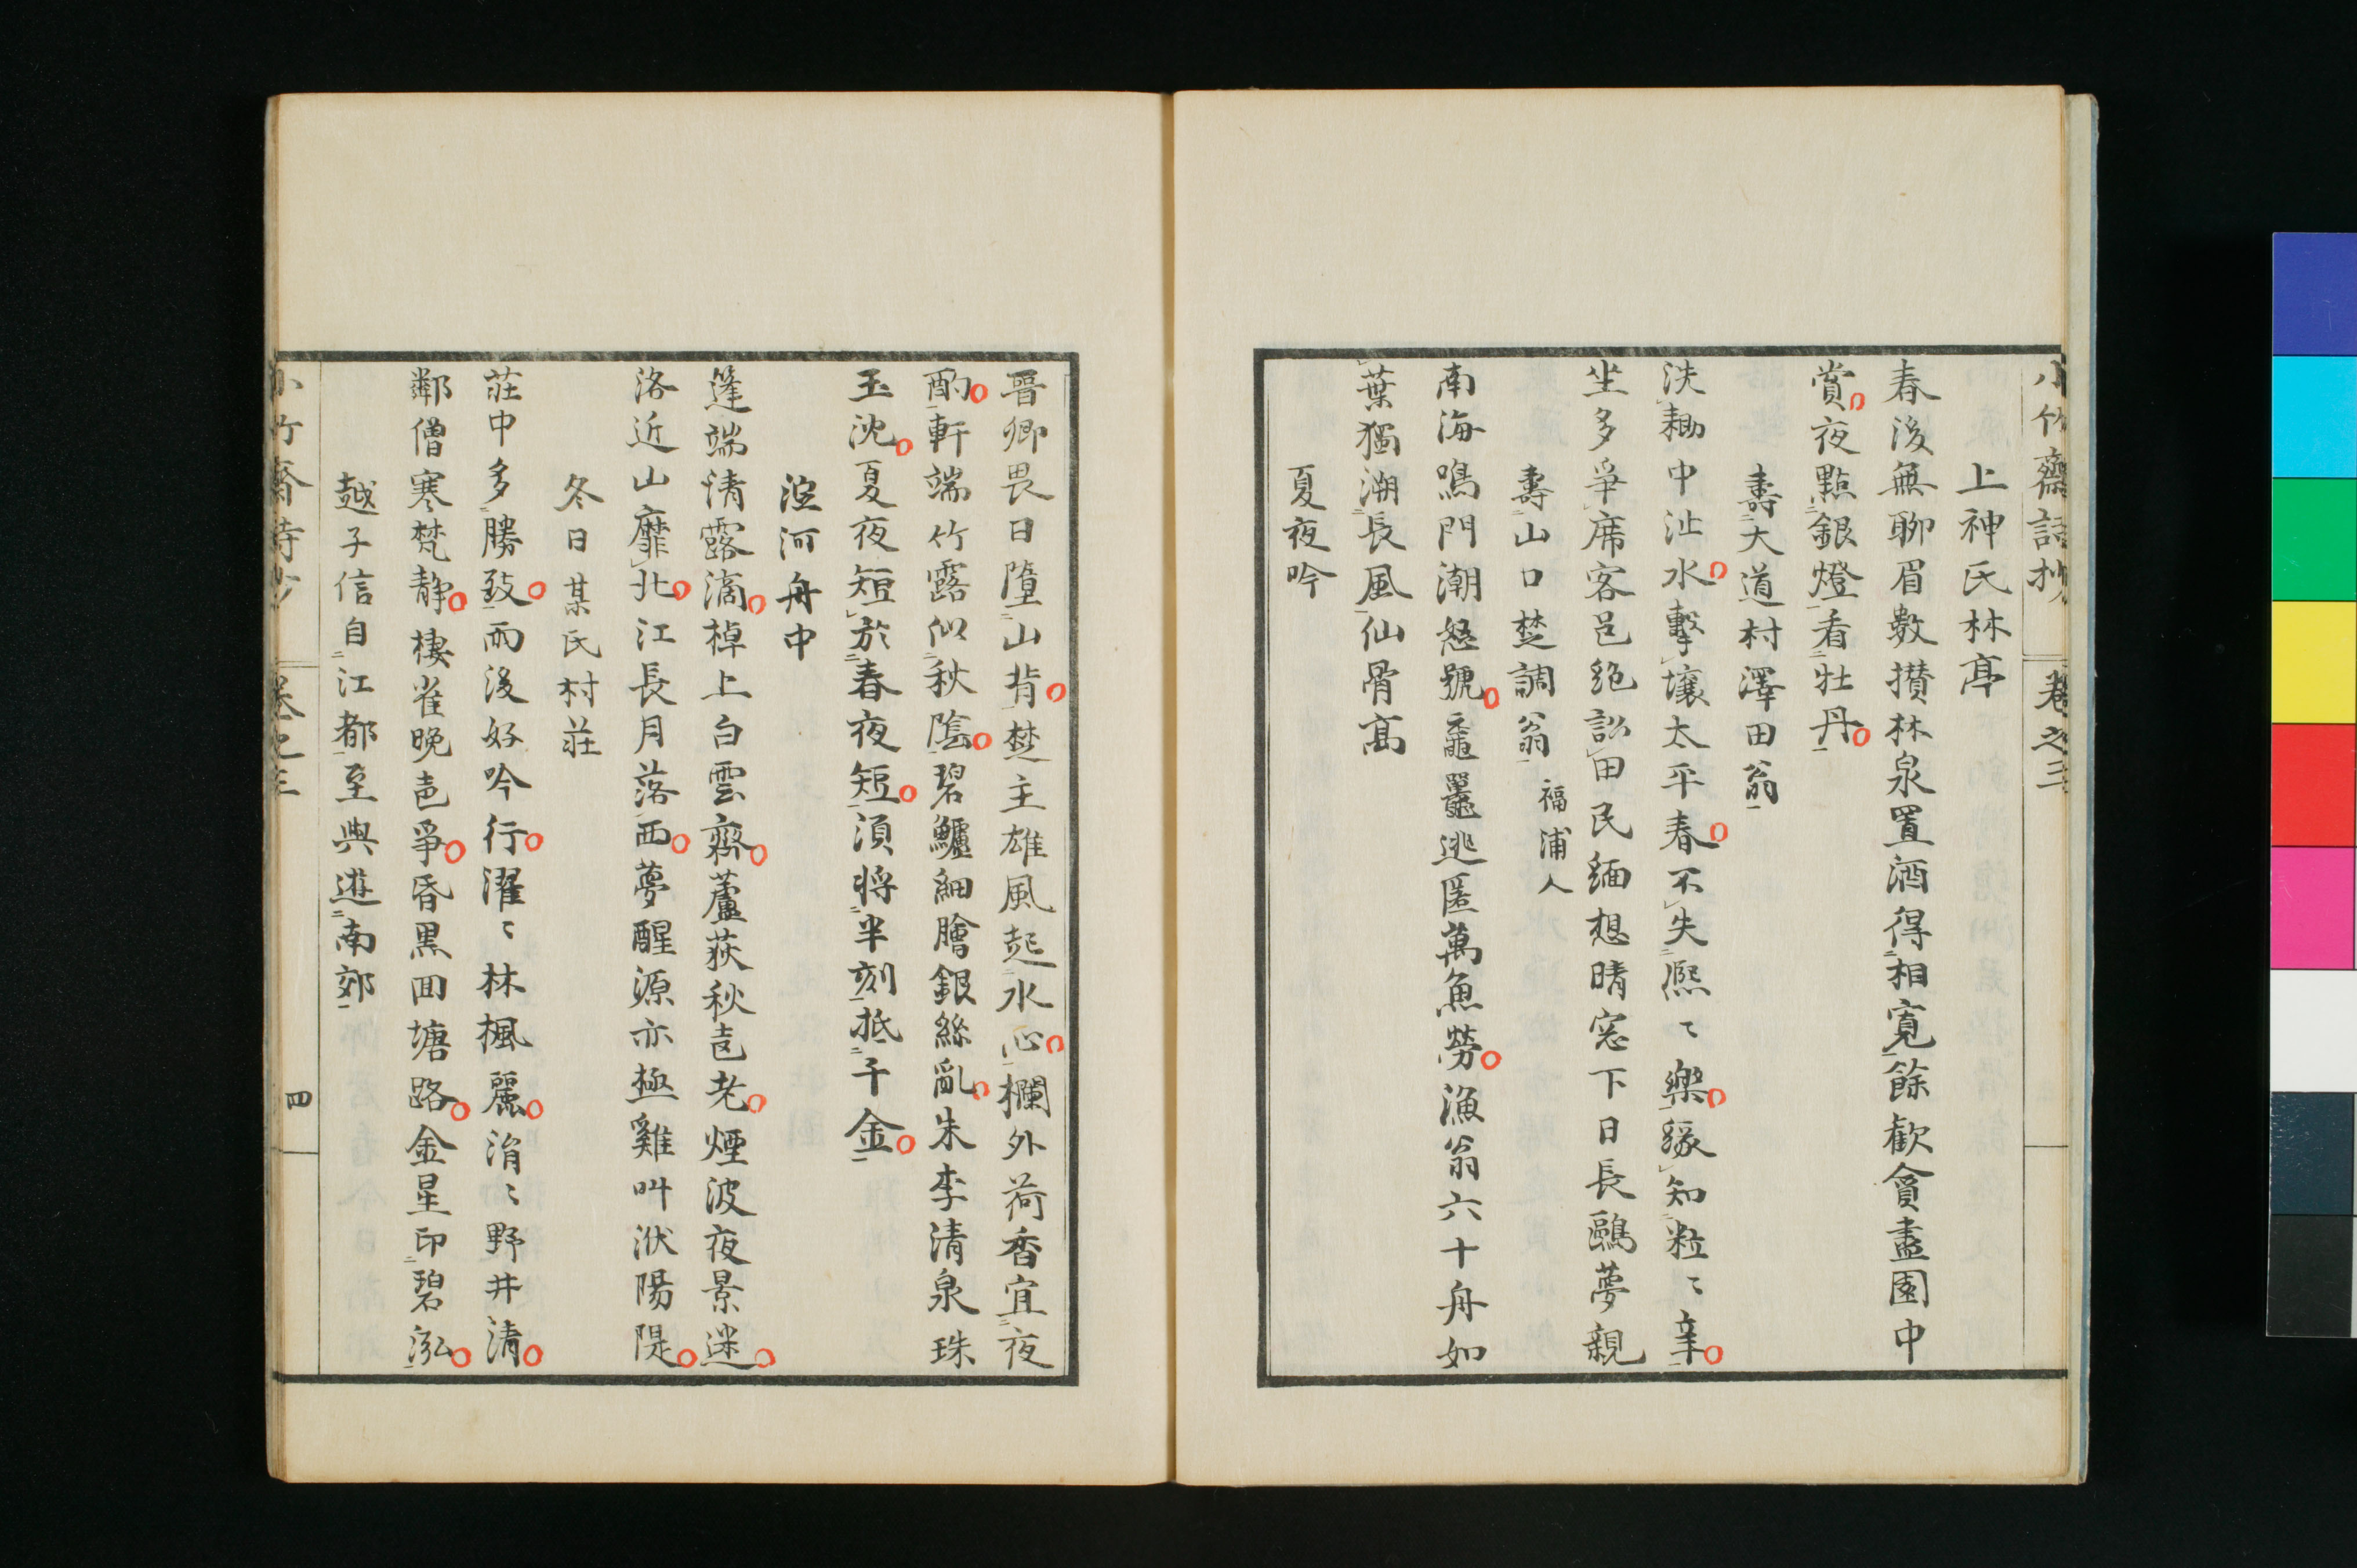 小竹齋詩抄 卷之三
上神氏林亭
春後無聊眉數攅林泉置酒得相寛餘歡貪盡園中
賞夜點銀燈看牡丹
壽大道村澤田翁
泆耡中沚水擊壤太平春不失熈〻樂緣知粒〻辛
坐多爭席客邑絶訟田民緬想晴窓下日長鷗夢親
壽山口楚調翁 福浦人
南海鳴門潮怒號黿鼉逃匿萬魚勞漁翁六十舟如
葉獨溯長風仙骨高
夏夜吟
晉卿畏日墮山背楚主雄風起水心欄外荷香宜夜
酌軒端竹露似秋陰碧鱸細膾銀絲亂朱李清泉珠
玉沈夏夜短於春夜短須將半刻抵千金
澱河舟中
篷端情露滴棹上白雲齊蘆荻秋声老煙波夜景迷
洛近山靡北江長月落西夢醒源亦極雞叫洑陽隄
冬日某氏村莊
莊中多勝致雨後好吟行濯〻林楓麗涓〻野井清
鄰僧寒梵静棲雀晩声爭昏黒回塘路金星印碧泓
越子信自江都至與遊南郊
小竹齋詩抄 卷之三 四